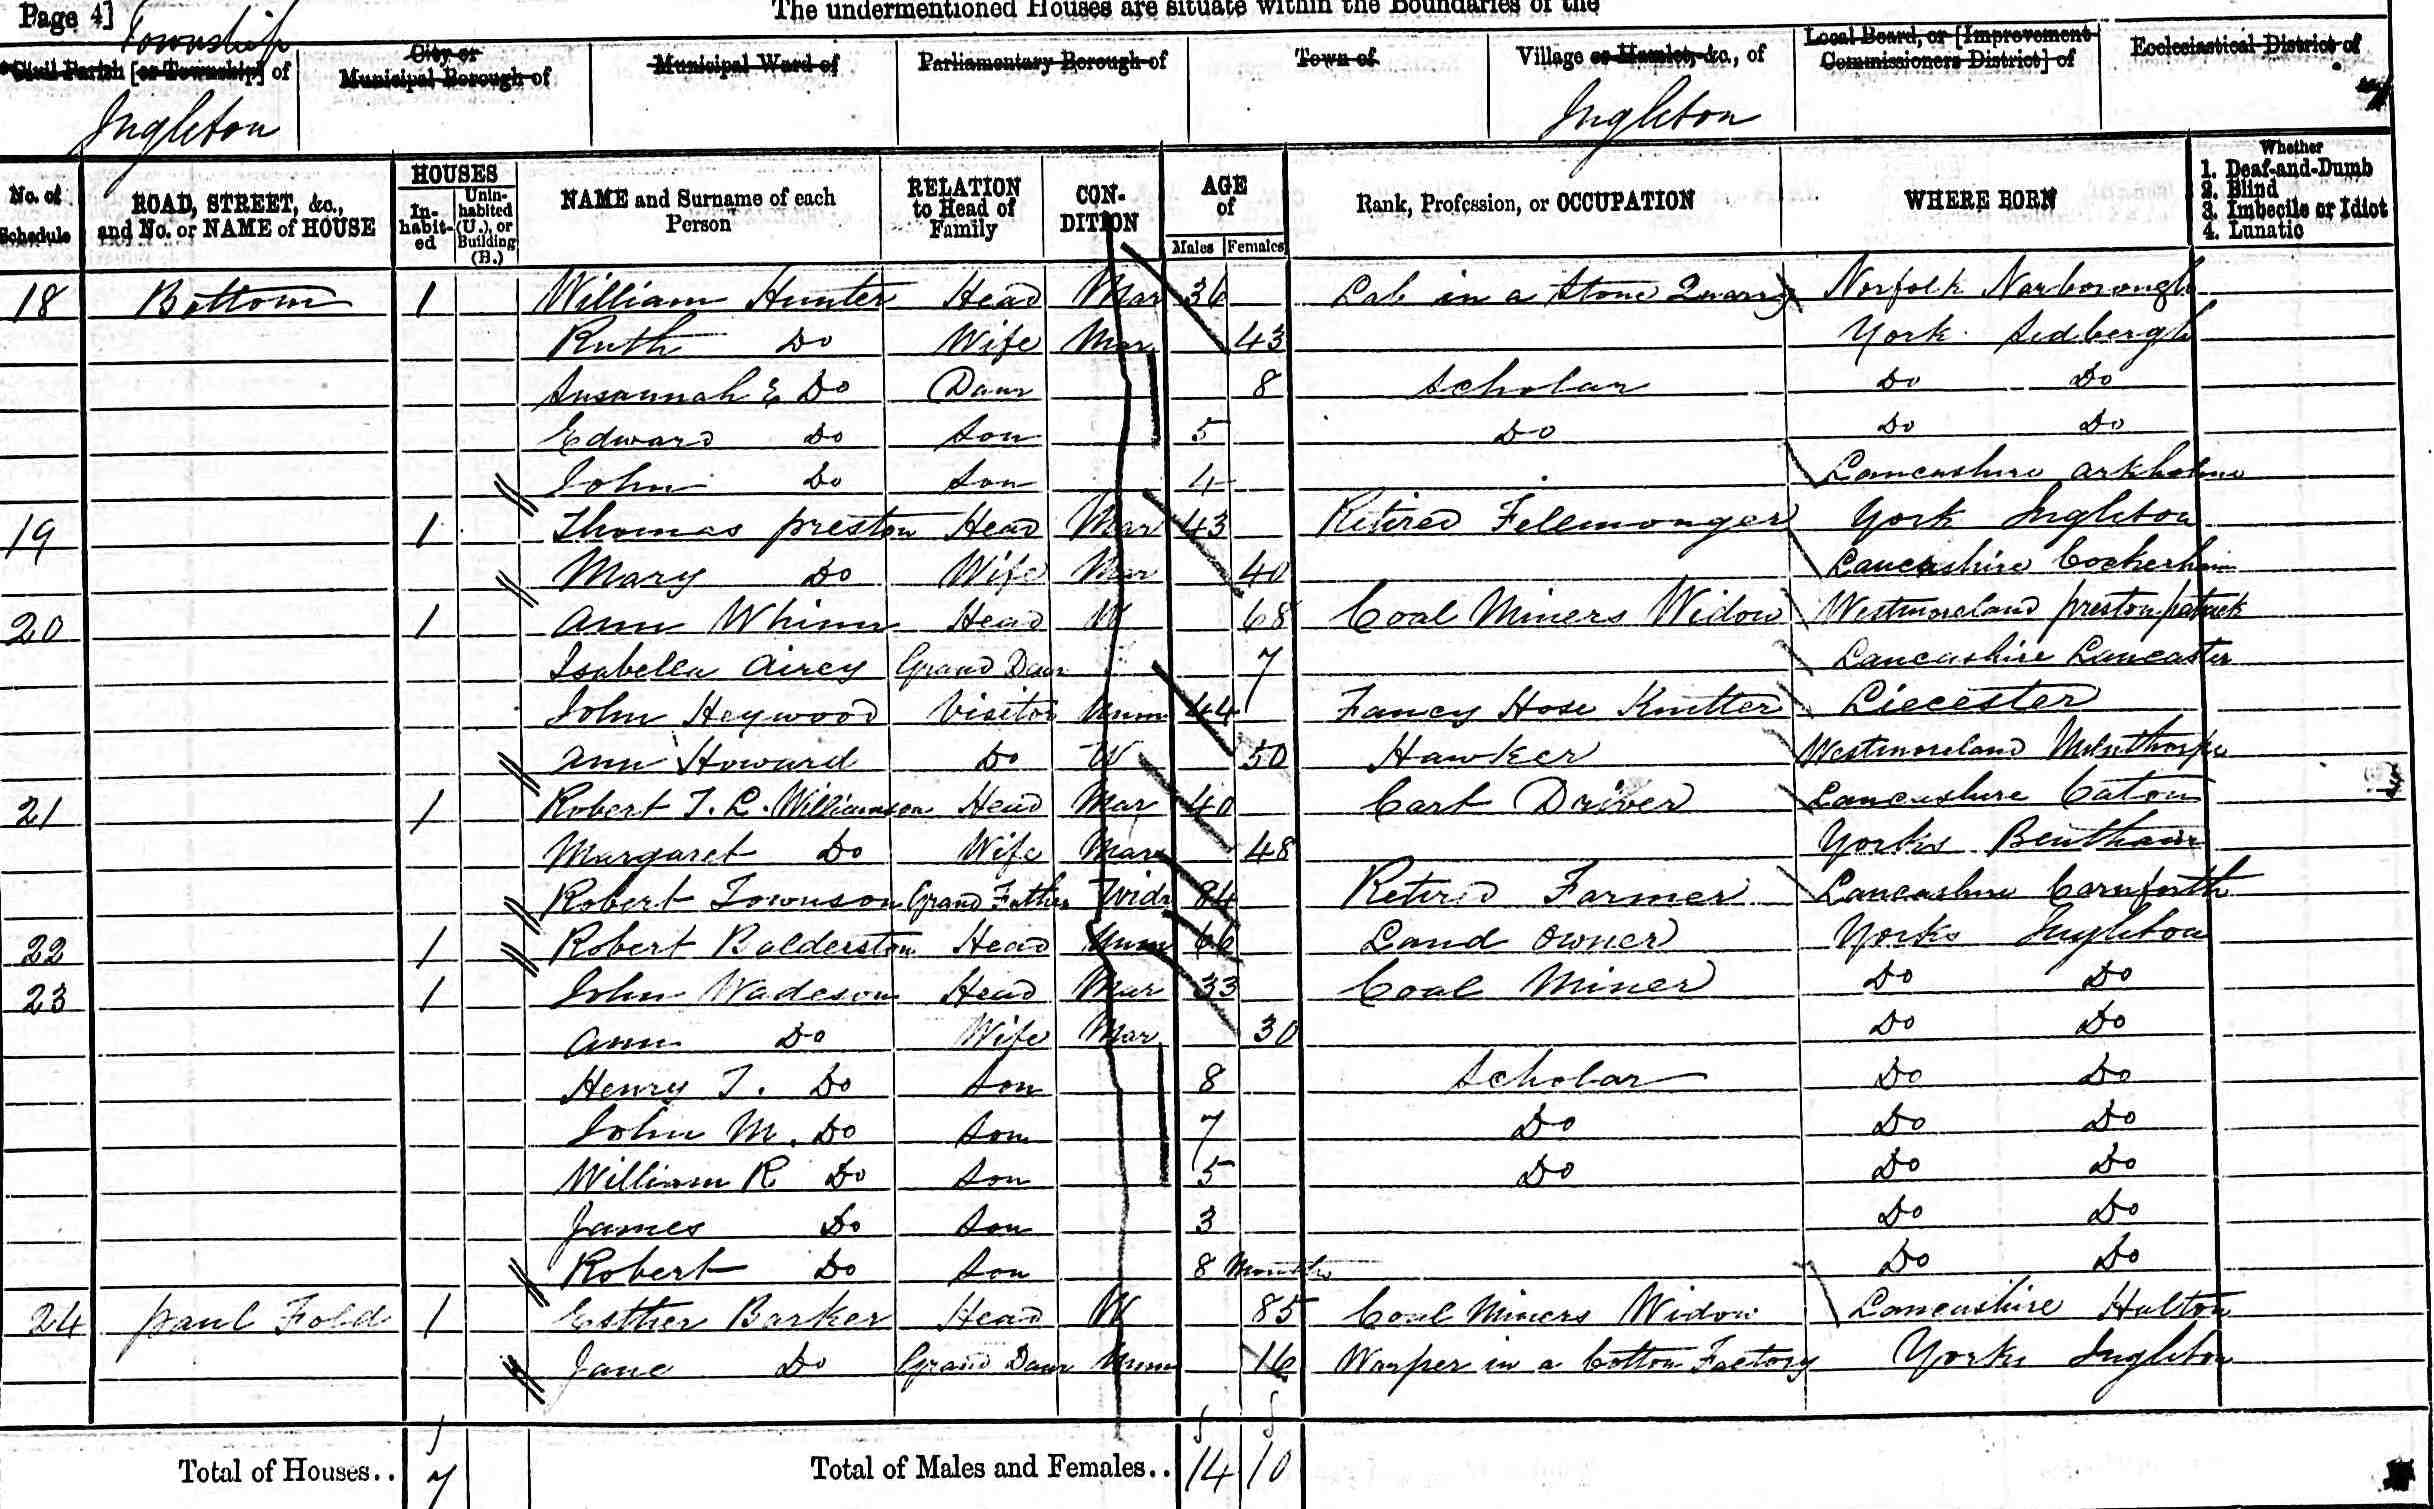 Page 4] The undermentioned Houses are situate within the Boundaries of the
Township
Civil Parish [or Township] of City or Municipal Borough of Municipal Ward of Parliamentary Borough of Town of Village or Hamlet, &c., of Local Board, or [Improvement Commissioners District] of Ecclesiastical District of
Ingleton Ingleton
No. of Schedule ROAD, STREET, &c., and No. or NAME of HOUSE HOUSES Inhabited Uninhabited (U.), or Building (B.) NAME and Surname of each Person RELATION to Head of Family CONDITION AGE of Males Females Rank, Profession, or OCCUPATION WHERE BORN Whether 1. Deaf-and-Dumb 2. Blind 3. Imbecile or Idiot 4. Lunatic
18 Bottom 1 William Hunter Head Mar 36 Lab in a Stone Quarry Norfolk Narborough
Ruth Do Wife Mar 43 York Sedbergh
Susannah E Do Daur 8 Scholar Do Do
Edward Do Son 5 Do Do Do
John Do Son 4 Lancashire Arkholme
19 1 Thomas Preston Head Mar 43 Retired Fellmonger York Ingleton
Mary Do Wife Mar 40 Lancashire Cockerham
20 1 Ann Whinn Head W 68 Coal Miners Widow Westmoreland Preston patrick
Isabella Airey Grand Daur 7 Lancashire Lancaster
John Heywood Visitor Unm 44 Fancy Hose Knitter Liecester
Ann Howard Do W 50 Hawker Westmoreland Milnthorpe
21 1 Robert T. L. Williamson Head Mar 40 Cart Driver Lancashire Caton
Margaret Do Wife Mar 48 Yorks Bentham
Robert Townson Grand Father Widr 84 Retired Farmer Lancashire Carnforth
22 1 Robert Balderston Head Unm 66 Land Owner Yorks Ingleton
23 1 John Wadeson Head Mar 33 Coal Miner Do Do
Ann Do Wife Mar 30 Do Do
Henry T. Do Son 8 Scholar Do Do
John M. Do Son 7 Do Do Do
William R Do Son 5 Do Do Do
James Do Son 3 Do Do
Robert Do Son 8 Months Do Do
24 Paul Fold 1 Esther Barker Head W 85 Coal Miners Widow Lancashire Halton
Jane Do Grand Daur Unm 16 Warper in a Cotton Factory Yorks Ingleton
Total of Houses.. 7 Total of Males and Females.. 14 10